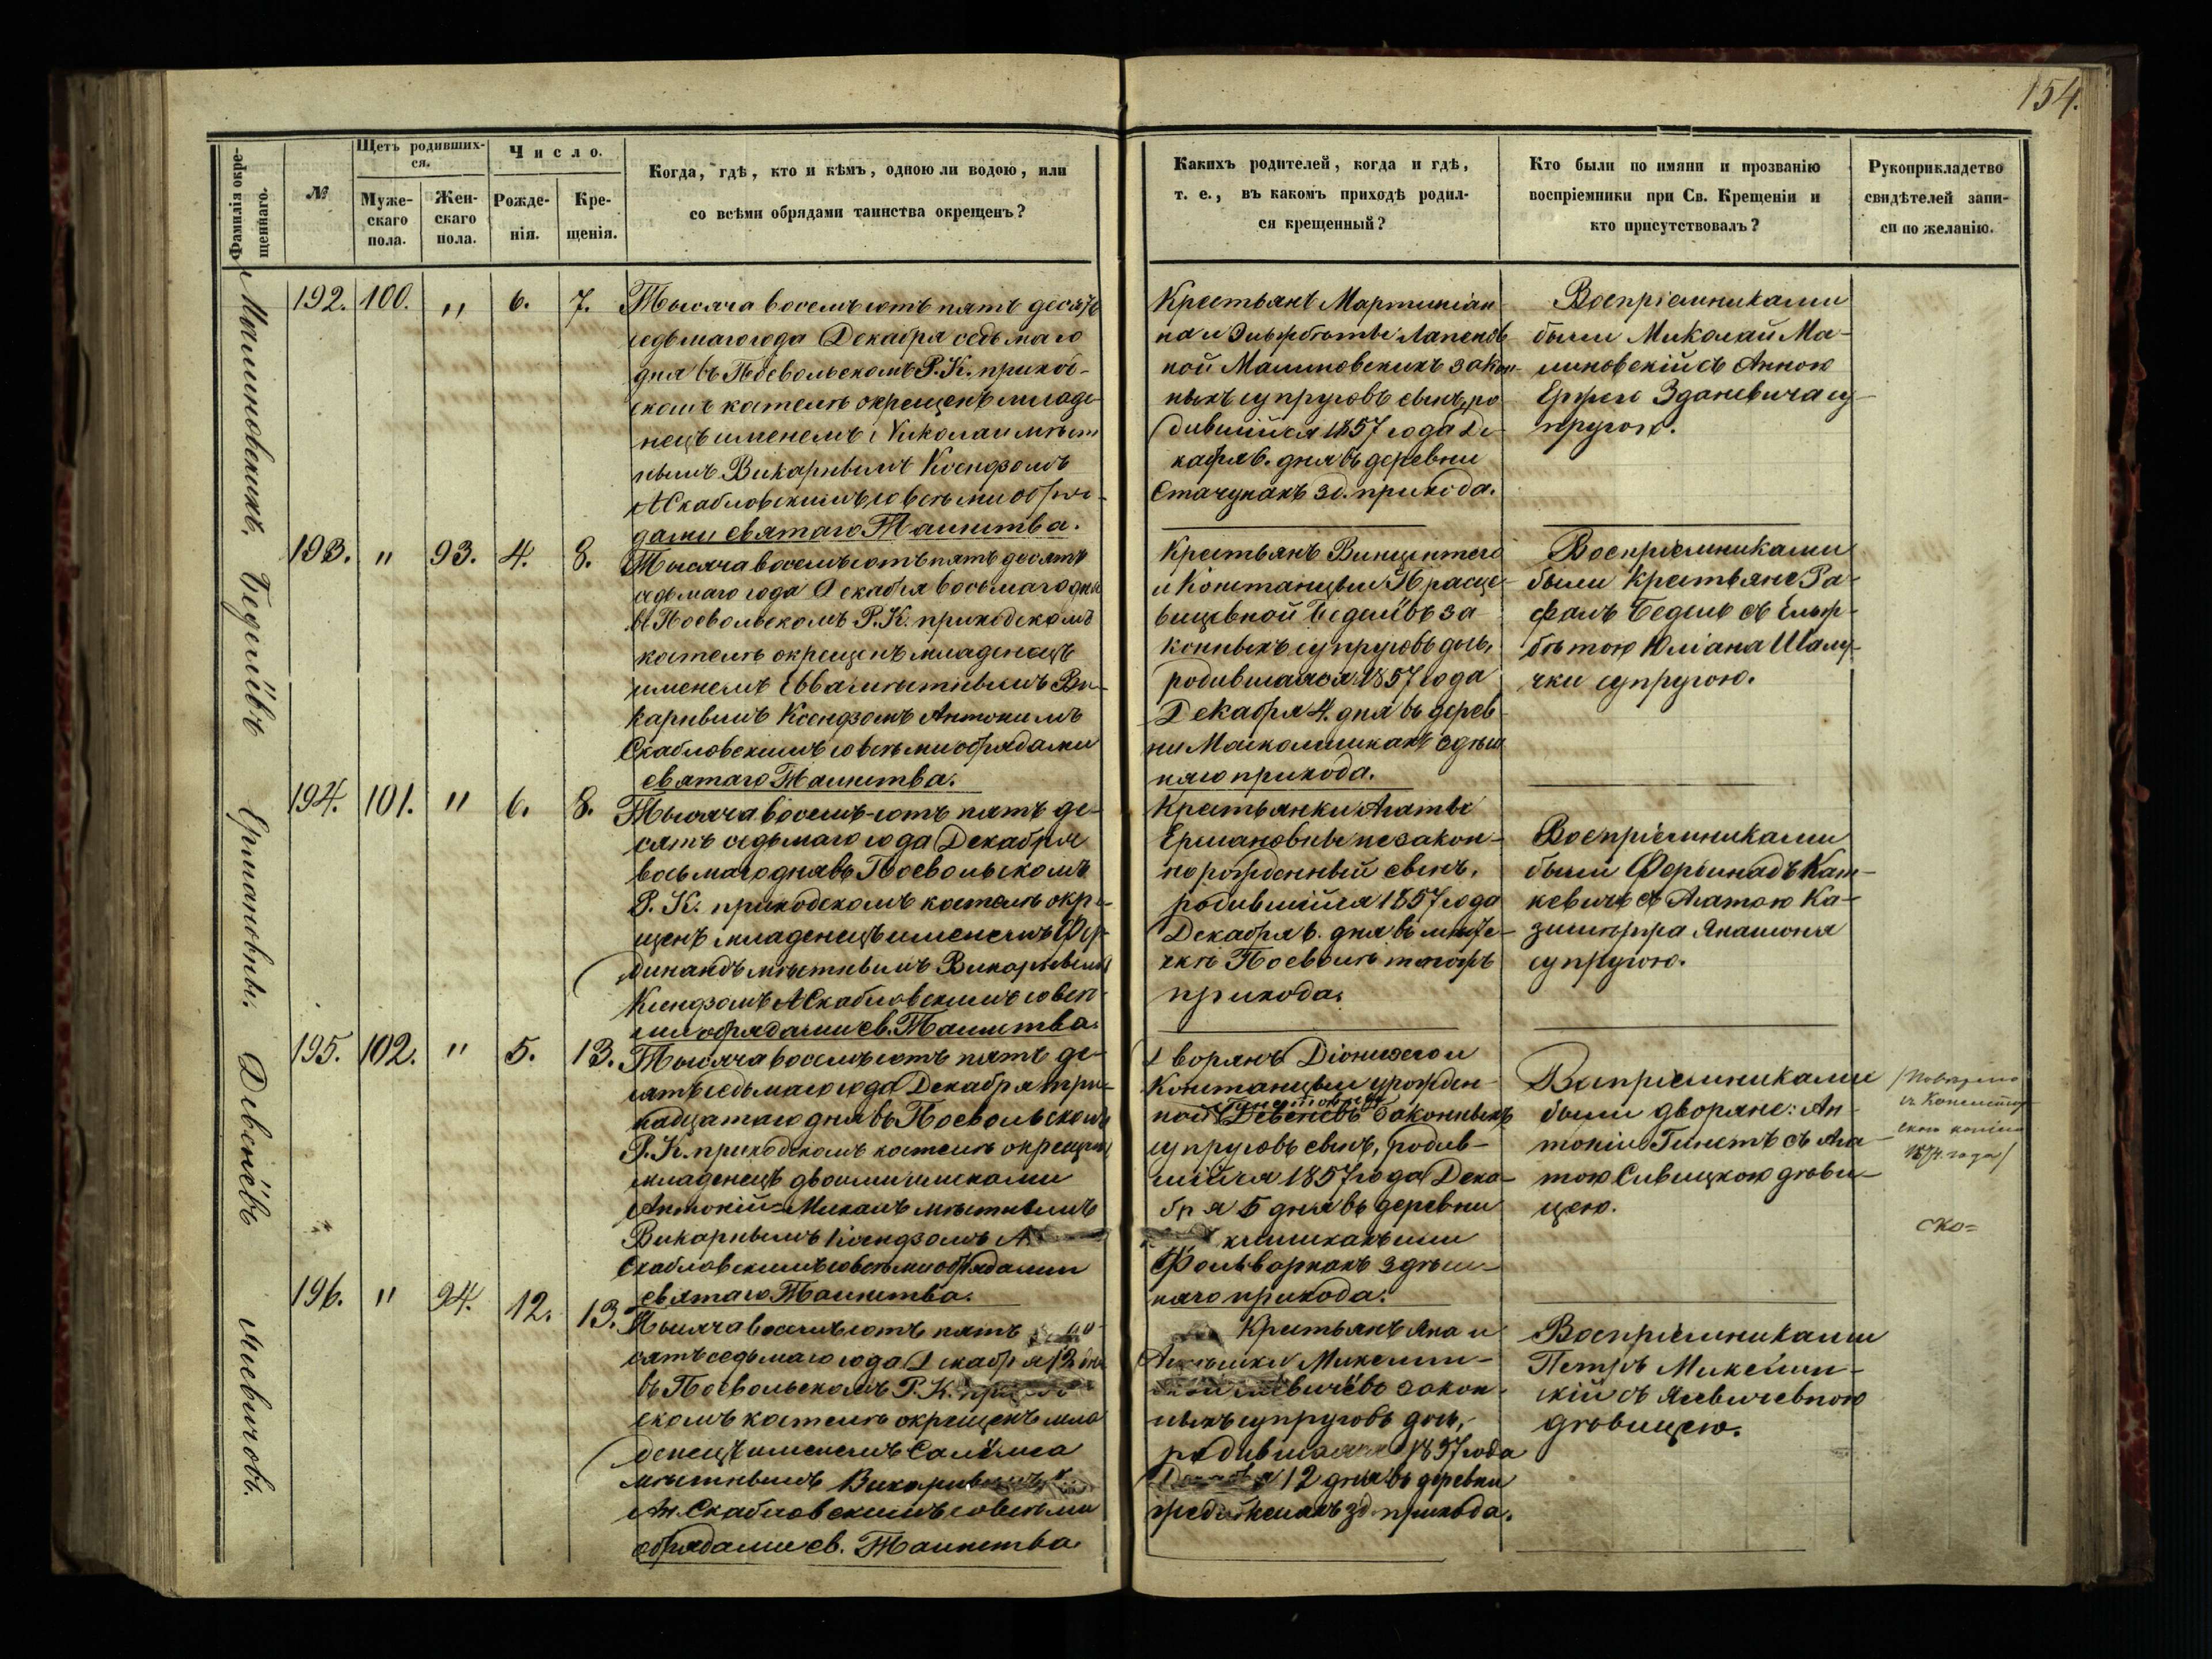 154.
Фамилія окре-
щеннаго.
№
Щетъ родивших-
ся.
Муже-
скаго
пола.
Жен-
скаго
пола.
Число.
Рожде-
нія.
Кре-
щенія.
Когда, гдѣ, кто и кѣмъ, одною ли водою, или
со всѣми обрядами таинства окрещенъ?
Какихъ родителей, когда и гдѣ,
т. е., въ какомъ приходѣ родил-
ся крещенный?
Кто были по имяни и прозванію
воспріемники при Св. Крещеніи и
кто присутствовалъ?
Рукоприкладство
свидѣтелей запи-
си по желанію.
Малиновскихъ.
192. 100. " 6. 7.
Тысяча восемъсотъ пятъ десятъ
седьмаго года Декабря седьмаго
дня въ Поевольскомъ Р. К. приход-
скомъ костелѣ окрещенъ младе-
нецъ именемъ Николай мѣст
нымъ Викарнымъ Ксендзомъ
А Скабловскимъ, со всѣми обря-
дами святаго Таинства.
Крестьянъ Мартиніан
на и Эльжбѣты Лапенов-
ной Малиновскихъ закон-
ныхъ супруговъ сынъ, ро
дившійся 1857 года Де
кабря 6. дня въ деревни
Стачунахъ зд. прихода.
Воспріемниками
были Миколай Ма-
линовскій съ Анною
Ержего Здановича су-
пругою.
Бедеіовъ
193. " 93. 4. 8.
Тысяча восемъсотъ пять десятъ
седьмаго года Декабря восьмаго дня
въ Поевольскомъ Р. К. приходскомъ
костелѣ окрещенъ младенецъ
именемъ Евва мѣстнымъ Ви-
карнымъ Ксендзомъ Антонимъ
Скабловскимъ со всѣми обрядами
святаго Таинства.
Крестьянъ Винцентего
и Констанцыи
законныхъ супруговъ дочь,
родившаяся 1857 года
Декабря 4. дня въ дерев-
ни здѣш
няго прихода.
Воспріемниками
были Крестьяне Ра-
фалъ съ Ельж-
бѣтою Юліана
супругою.
Ермановны.
194. 101. " 6. 8.
Тысяча восемъ-сотъ пятъ де-
сятъ седьмаго года Декабря
восьмаго дня въ Поевольскомъ
Р. К. приходскомъ костелѣ окре-
щенъ младенецъ именемъ Фер-
динандъ мѣстнымъ Викарнымъ
Ксендзомъ А Скабловскимъ со всѣ-
ми обрядами св. Таинства.
Крестьянки Агаты
Ермановны незакон-
норожденный сынъ,
родившійся 1857 года
Декабря 6. дня въ мѣсте-
чкѣ Поеволѣ тогожъ
прихода.
Воспріемниками
были Фердинадъ
съ Агатою Ка-
зимержа
супругою.
Девеніовъ
195. 102. " 5. 13.
Тысяча восемъсотъ пятъ де-
сятъ седьмаго года Декабря три-
надцатаго дня въ Поевольскомъ
Р. К. приходскомъ костелѣ окрещенъ
младенецъ двоими имѣнами
Антоній-Михалъ мѣстнымъ
Викарнымъ Ксендзомъ А
Скабловскимъ со всѣми обрядами
святаго Таинства.
Дворянъ Діонизего и
Констанцыи урожден-
ной Девенёвъ законныхъ
супруговъ сынъ, родив-
шійся 1857 года Дека-
бря 5 дня въ деревни
Фольваркахъ здѣш-
няго прихода.
Воспріемниками
были дворяне: Ан-
тоній Гинетъ съ Ага-
тою Сивицкою дѣви-
цею.
года
ско=
196. " 94. 12. 13.
Тысяча восемъсотъ пятъ
сятъ седьмаго года Декабря 12 дня
въ Поевольскомъ Р. К.
скомъ костелѣ окрещенъ мла
денецъ именемъ Саломеа
мѣстнымъ Викарнымъ
Ан. Скабловскимъ со всѣми
обрядами св. Таинства
Крестьянъ Яна и
закон-
ныхъ супруговъ дочь,
родившаяся 1857 года
12 дня въ деревни
зд. прихода.
Воспріемниками
Петръ
скій съ
дѣвицею.